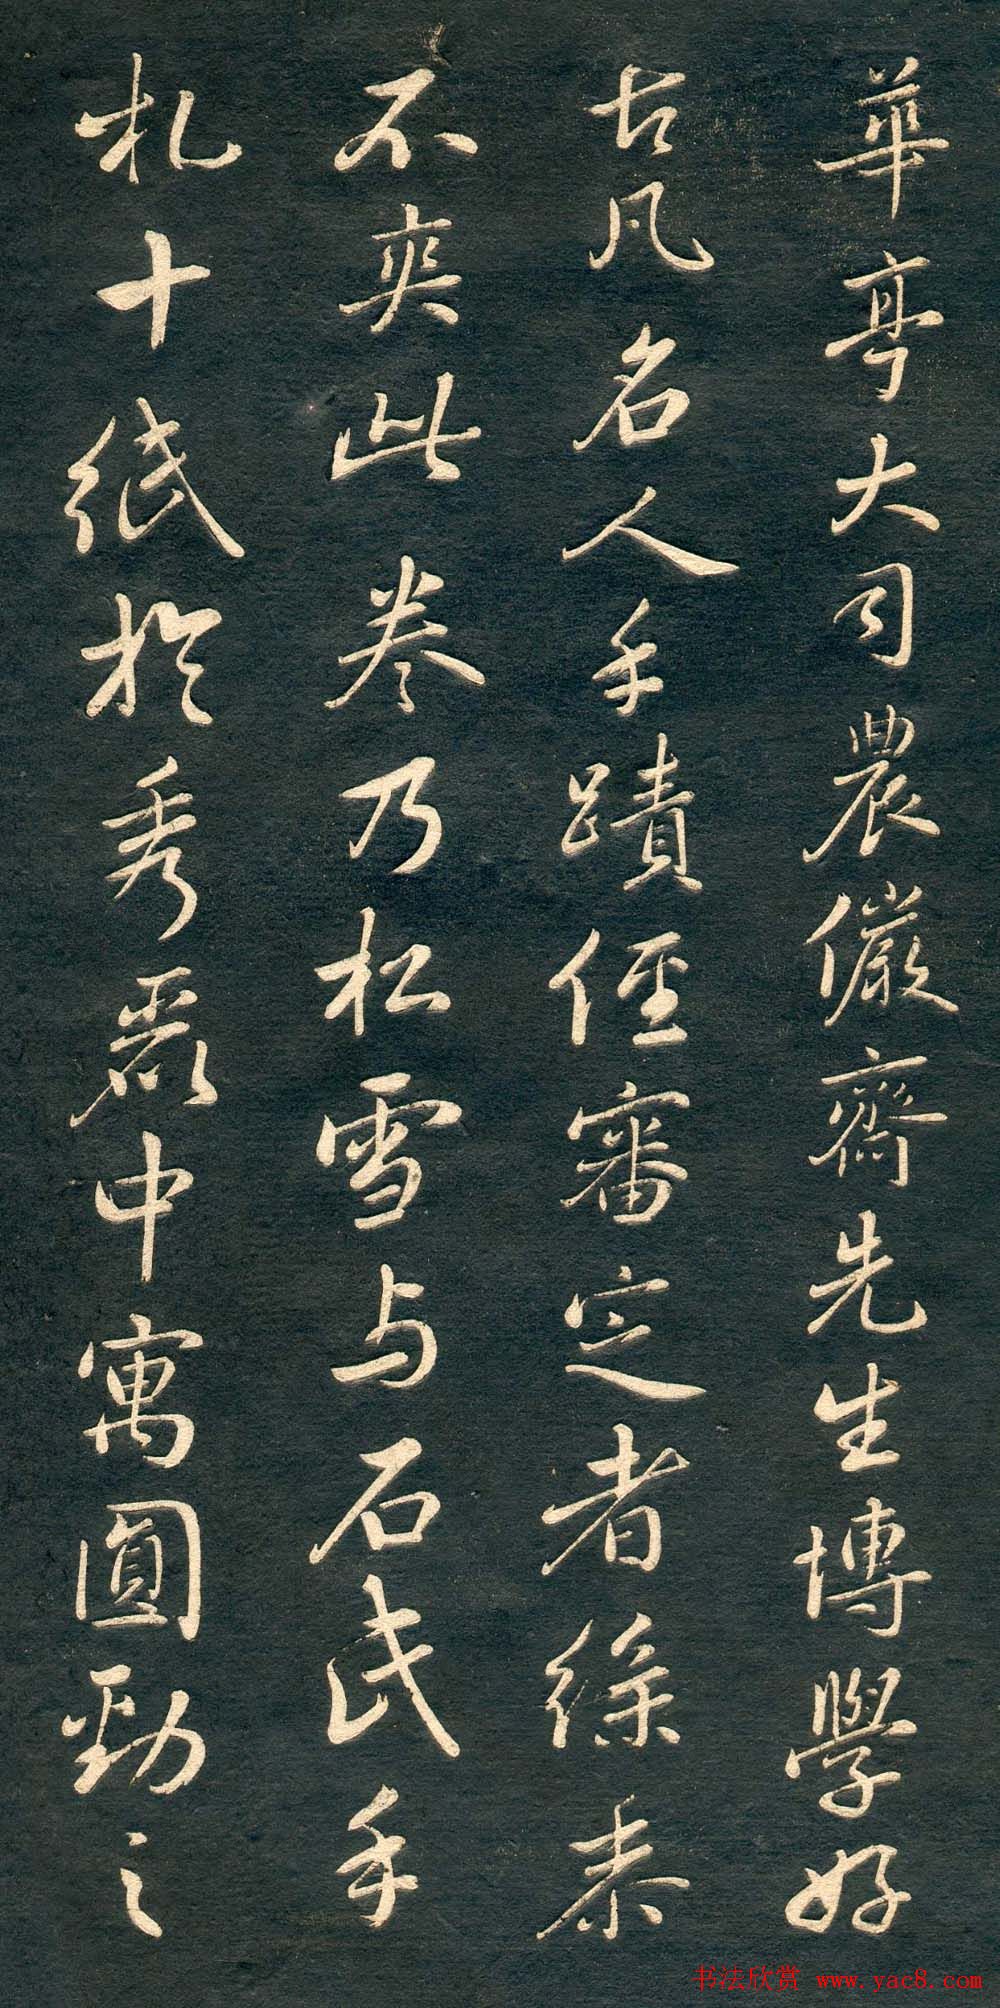 華亭大司農儼齋先生博學好
古凡名人手蹟經審定者絲黍
不爽此卷乃松雪与石民手
札十紙於秀麗中寓圓勁之
书法欣赏 www.yac8.com